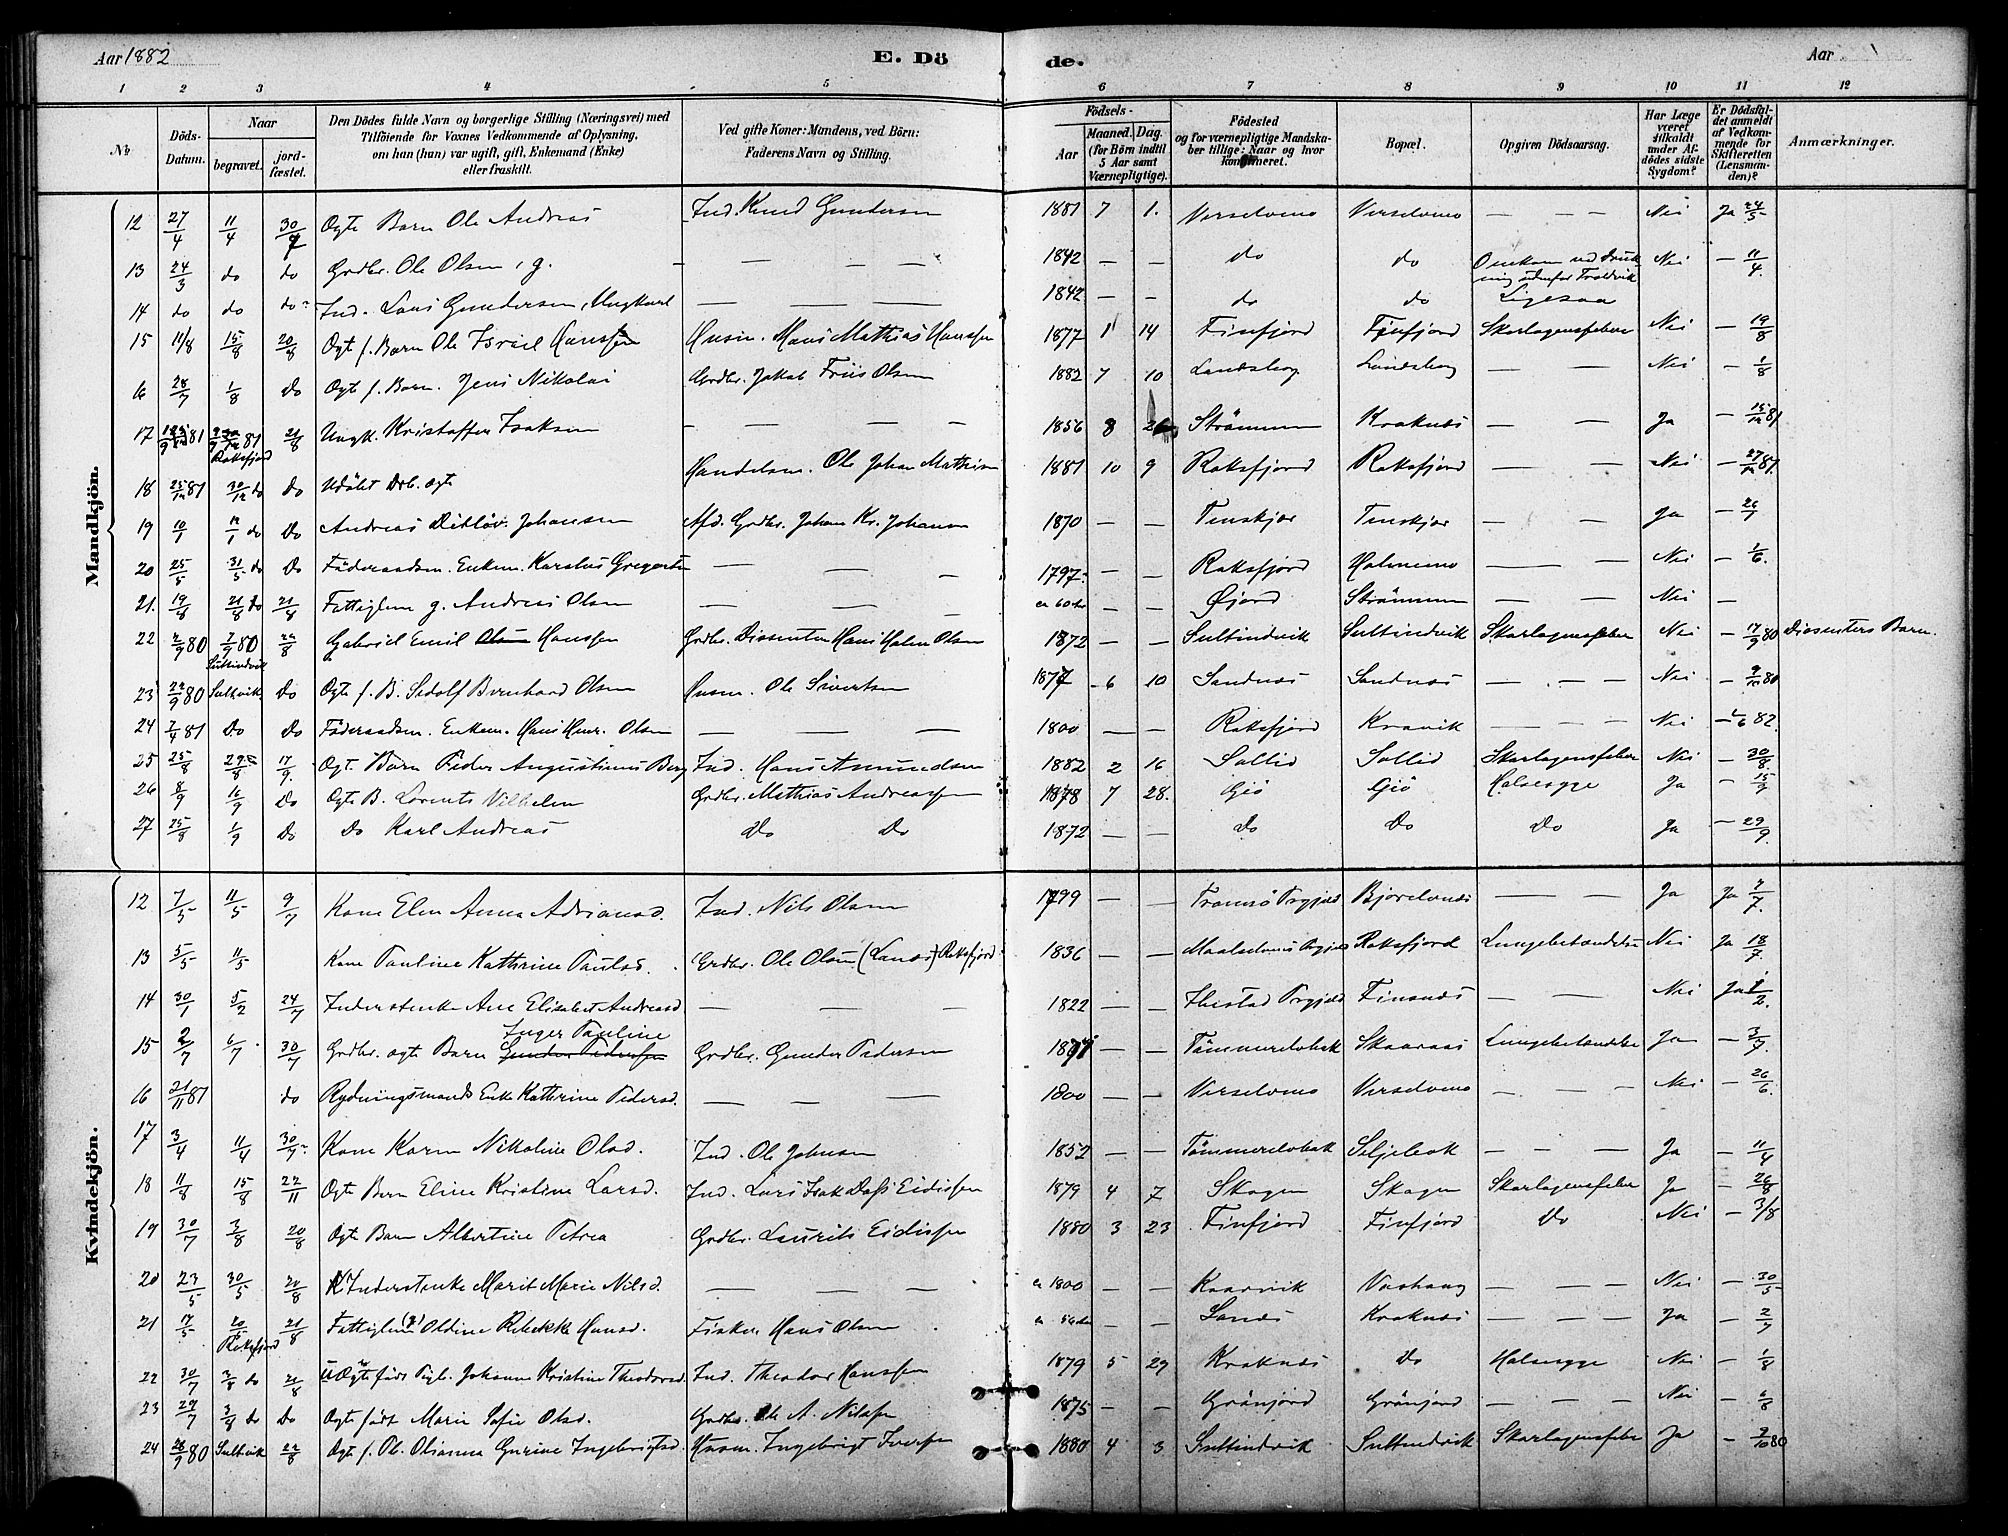 Aar 1882 E. Dö de. Aar
1 2 3 4 5 6 7 8 9 10 11 12
No Döds-Datum. Naar begravet. jordfæstet. Den Dödes fulde Navn og borgerlige Stilling (Næringsvei) med Tilföiende for Voxnes Vedkommende af Oplysning, om han (hun) var ugift, gift, Enkemand (Enke) eller fraskilt. Ved gifte Koner: Mandens, ved Börn: Faderens Navn og Stilling. Födsels- Aar Maaned. Dag. (for Börn indtil 5 Aar samt Værnepligtige). Födested og for værnepligtige Mandskaber tillige: Naar og hvor konfirmeret. Bopæl. Opgiven Dödsaarsag. Har Læge været tilkaldt under Afdödes sidste Sygdom? Er Dödsfaldet anmeldt af Vedkommende for Skifteretten (Lensmanden)? Anmærkninger.
Mandkjön.
12 27/4 11/4 30/7 Ogte Barn Ole Andreas Ind. Knud Gundersen 1881 7 1. Verselvmo Verselvmo — — — Nei Ja 24/5
13 24/3 do do Grdbr. Ole Olsen, g. — — — — 1842 — — do do Omkom ved Drukning udenfor Nei — 11/4
14 do do do Ind. Lars Gundersen, Ungkarl — — — 1842 — — do do Ligesaa
15 11/8 15/8 20/8 Ogt f. Barn Ole Israel Hanssen Husm. Hans Mathias Hanssen 1877 1 14 Finfjord Finfjord Skarlagensfeber Nei — 19/8
6 28/7 1/8 Do Ogt f. Barn. Jens Nikolai Grdbr. Jakob Friis Olsen 1882 7 10 Landsberg Landsberg — — Nei — 1/8
17 81 81 Roksfjord 21/8 Ungk. Kristoffer Isaksen — — — — 1856 8 Strömmen Kraknæs — — Ja — 15/12 81
18 25/12 81 30/12 do Do Udöbt Drb. ogt Handelsm. Ole Johan Mathisen 1881 10 9 Roksfjord Roksfjord — — Nei — 27/12 81.
19 10/1 12/1 do Do Andreas Ditlöv Johansen Afd. Grdbr. Johan Kr. Johansen 1870 — — Tenskjær Tenskjær — — Ja — 26/1
20 25/5 31/5 do Do Föderaadsm. Enkem. Karelius Gregersen — — — 1797 — — Roksfjord Holmemo — — Nei — 1/6.
21. 19/8 21/8 do 21/8 Fattiglem g. Andreas Olsen — — — ca 60 Aar — — Öjord Strömmen — — Nei —
22 2/9 80 7/9 80 Sultindvik 22/8 Gabriel Emil Olsen Hanssen Grdbr. Dissenter Hans Holm Olsen 1872 — — Sultindvik Sultindvik Skarlagensfeber Nei — 17/9 80 Dissenters Barn.
23 22/9 80 Sultvik Do Ogt f. B. Sedolf Bernhard Olsen Husm. Ole Sivertsen 1877 6 10 Sandnæs Sandnæs — — — Nei — 9/10 80
24 7/4 81 Do Do Föderaadsm. Enkem. Hans Henr. Olsen — — — 1800 — — Roksfjord Kravik — — — Nei — 1/6 82.
25 25/8 29/8 17/9. Ogt. Barn Peder Augustinus Berg Ind. Hans Asmundsen 1882 2 16 Sollid Sollid Skarlagensfeber Nei — 30/8.
26 8/9 16/9 Do Ogt B. Lorents Vilhelm Grdbr. Mathias Andreassen 1878 7 28. Giö Giö Halssyge Ja — 15/9
27 25/8 1/9 Do Do Karl Andreas Do Do 1872 — — Do Do Do Ja — 29/9.
Kvindekjön.
12 7/5 11/5 9/7 Kone Elen Anna Adriansd. Ind. Nils Olsen 1799 — — Tromsö Prgjeld Bjorelvnæs — — Ja Ja 7/7.
13 5/5 11/5 Kone Pauline Kathrine Paulsd. Grdbr. Ole Olsen (Lanæs) Roksfjord 1836 — — Maalselvens Prgjeld Roksfjord Lungebetændelse Nei Ja 18/7.
14 30/1 5/2 24/7 Inderstenke Ane Elisabet Andreasd — — — 1822 — — Ibestad Prgjeld Finsnæs — — Nei Ja 1/2.
15 2/7 6/7 30/7 Grdbr. ogte Barn Gunder Pedersen Inger Pauline Grdbr. Gunder Pedersen — — Tömmerelvbak Skaaraas Lungebetændelse Ja — 3/7.
16 21/11 81 do Rydningsmands Enke Kathrine Pedersd. — — — 1800 — — Verselvmo Verselvmo — — — Nei — 26/6.
17 3/4 11/4 30/7 Kone Karen Nikoline Olsd. Ind. Ole Johnsen 1852 — — Tömmerelvbak Seljebak — — — Ja — 11/4
18 11/8 15/8 22/11 Ogt Barn Eline Kristine Larsd. Ind. Lars Isak Dass Eidissen 1879 4 7 Skogen Skogen Skarlagensfeber Ja — 26/8
19 30/7 3/8 20/8 Ogt Barn Albertine Petrea Grdbr. Laurits Eidissen 1880 3 23 Finfjord Finfjord Do Nei — 3/8
20 23/5 30/5 20/8 Inderstenke Marit Marie Nilsd. — — — ca 1800 — — Kaarvik Vashaug — — — Nei — 30/5
21 17/5 20/5 Roksfjord 21/8 Fattiglem (g) Oldine Rebekke Hansd. Fisker Hans Olsen ca 56 Aar — — Lanæs Kraknæs — — Ja — 2/7
22 30/7 3/8 do 21/8 U Ogte födt Pigb. Johanne Kristine Theodorsd. Ind. Theodor Hanssen 1879 5 29 Kraknæs Do Halssyge Nei — 1/8
23 29/7 3/8 Do Do Ogte födt Marie Sofie Olsd. Grdbr. Ole A. Nilssen 1875 — — Grönjord Grönjord — — — Nei — 6/8
24 28/9 80 Sultvik 22/8 Ogt f. Olianna Gurine Ingebrigtsd. Husm. Ingebrigt Iversen 1880 4 3 Sultindvik Sultindvik Skarlagensfeber Ja — 7/10 80